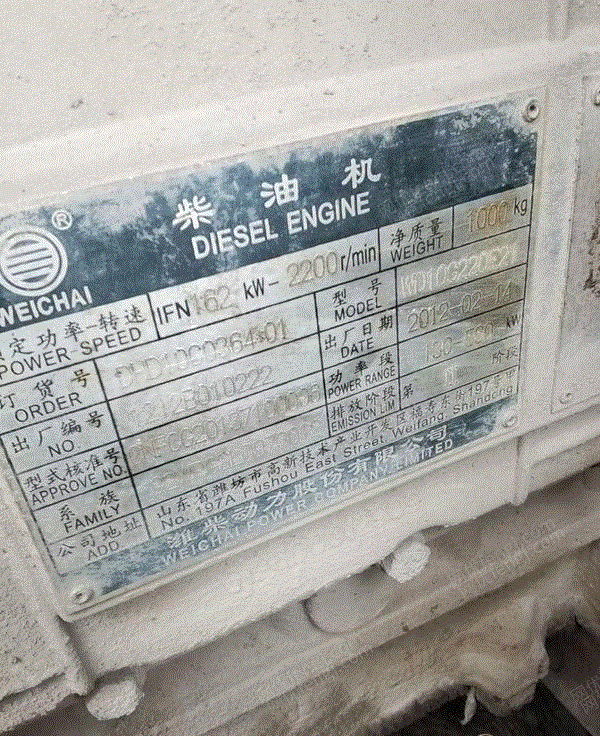 柴油机
DIESEL ENGINE
®
WEICHAI
额定功率-转速
POWER-SPEED
IFN 162 kW- 2200r/min
净质量
WEIGHT
1000 kg
订货号
ORDER
型号
MODEL
WD10G220E21
出厂编号
NO.
出厂日期
DATE
2012-02-14
型式核准号
APPROVE NO.
功率段
POWER RANGE
130-560 kW
系族
FAMILY
排放阶段
EMISSION LIM
第 II 阶段
公司地址
ADD
山东省潍坊市高新技术产业开发区福寿东街197号甲
No. 197A Fushou East Street, Weifang, Shandong
潍柴动力股份有限公司
WEICHAI POWER COMPANY LIMITED